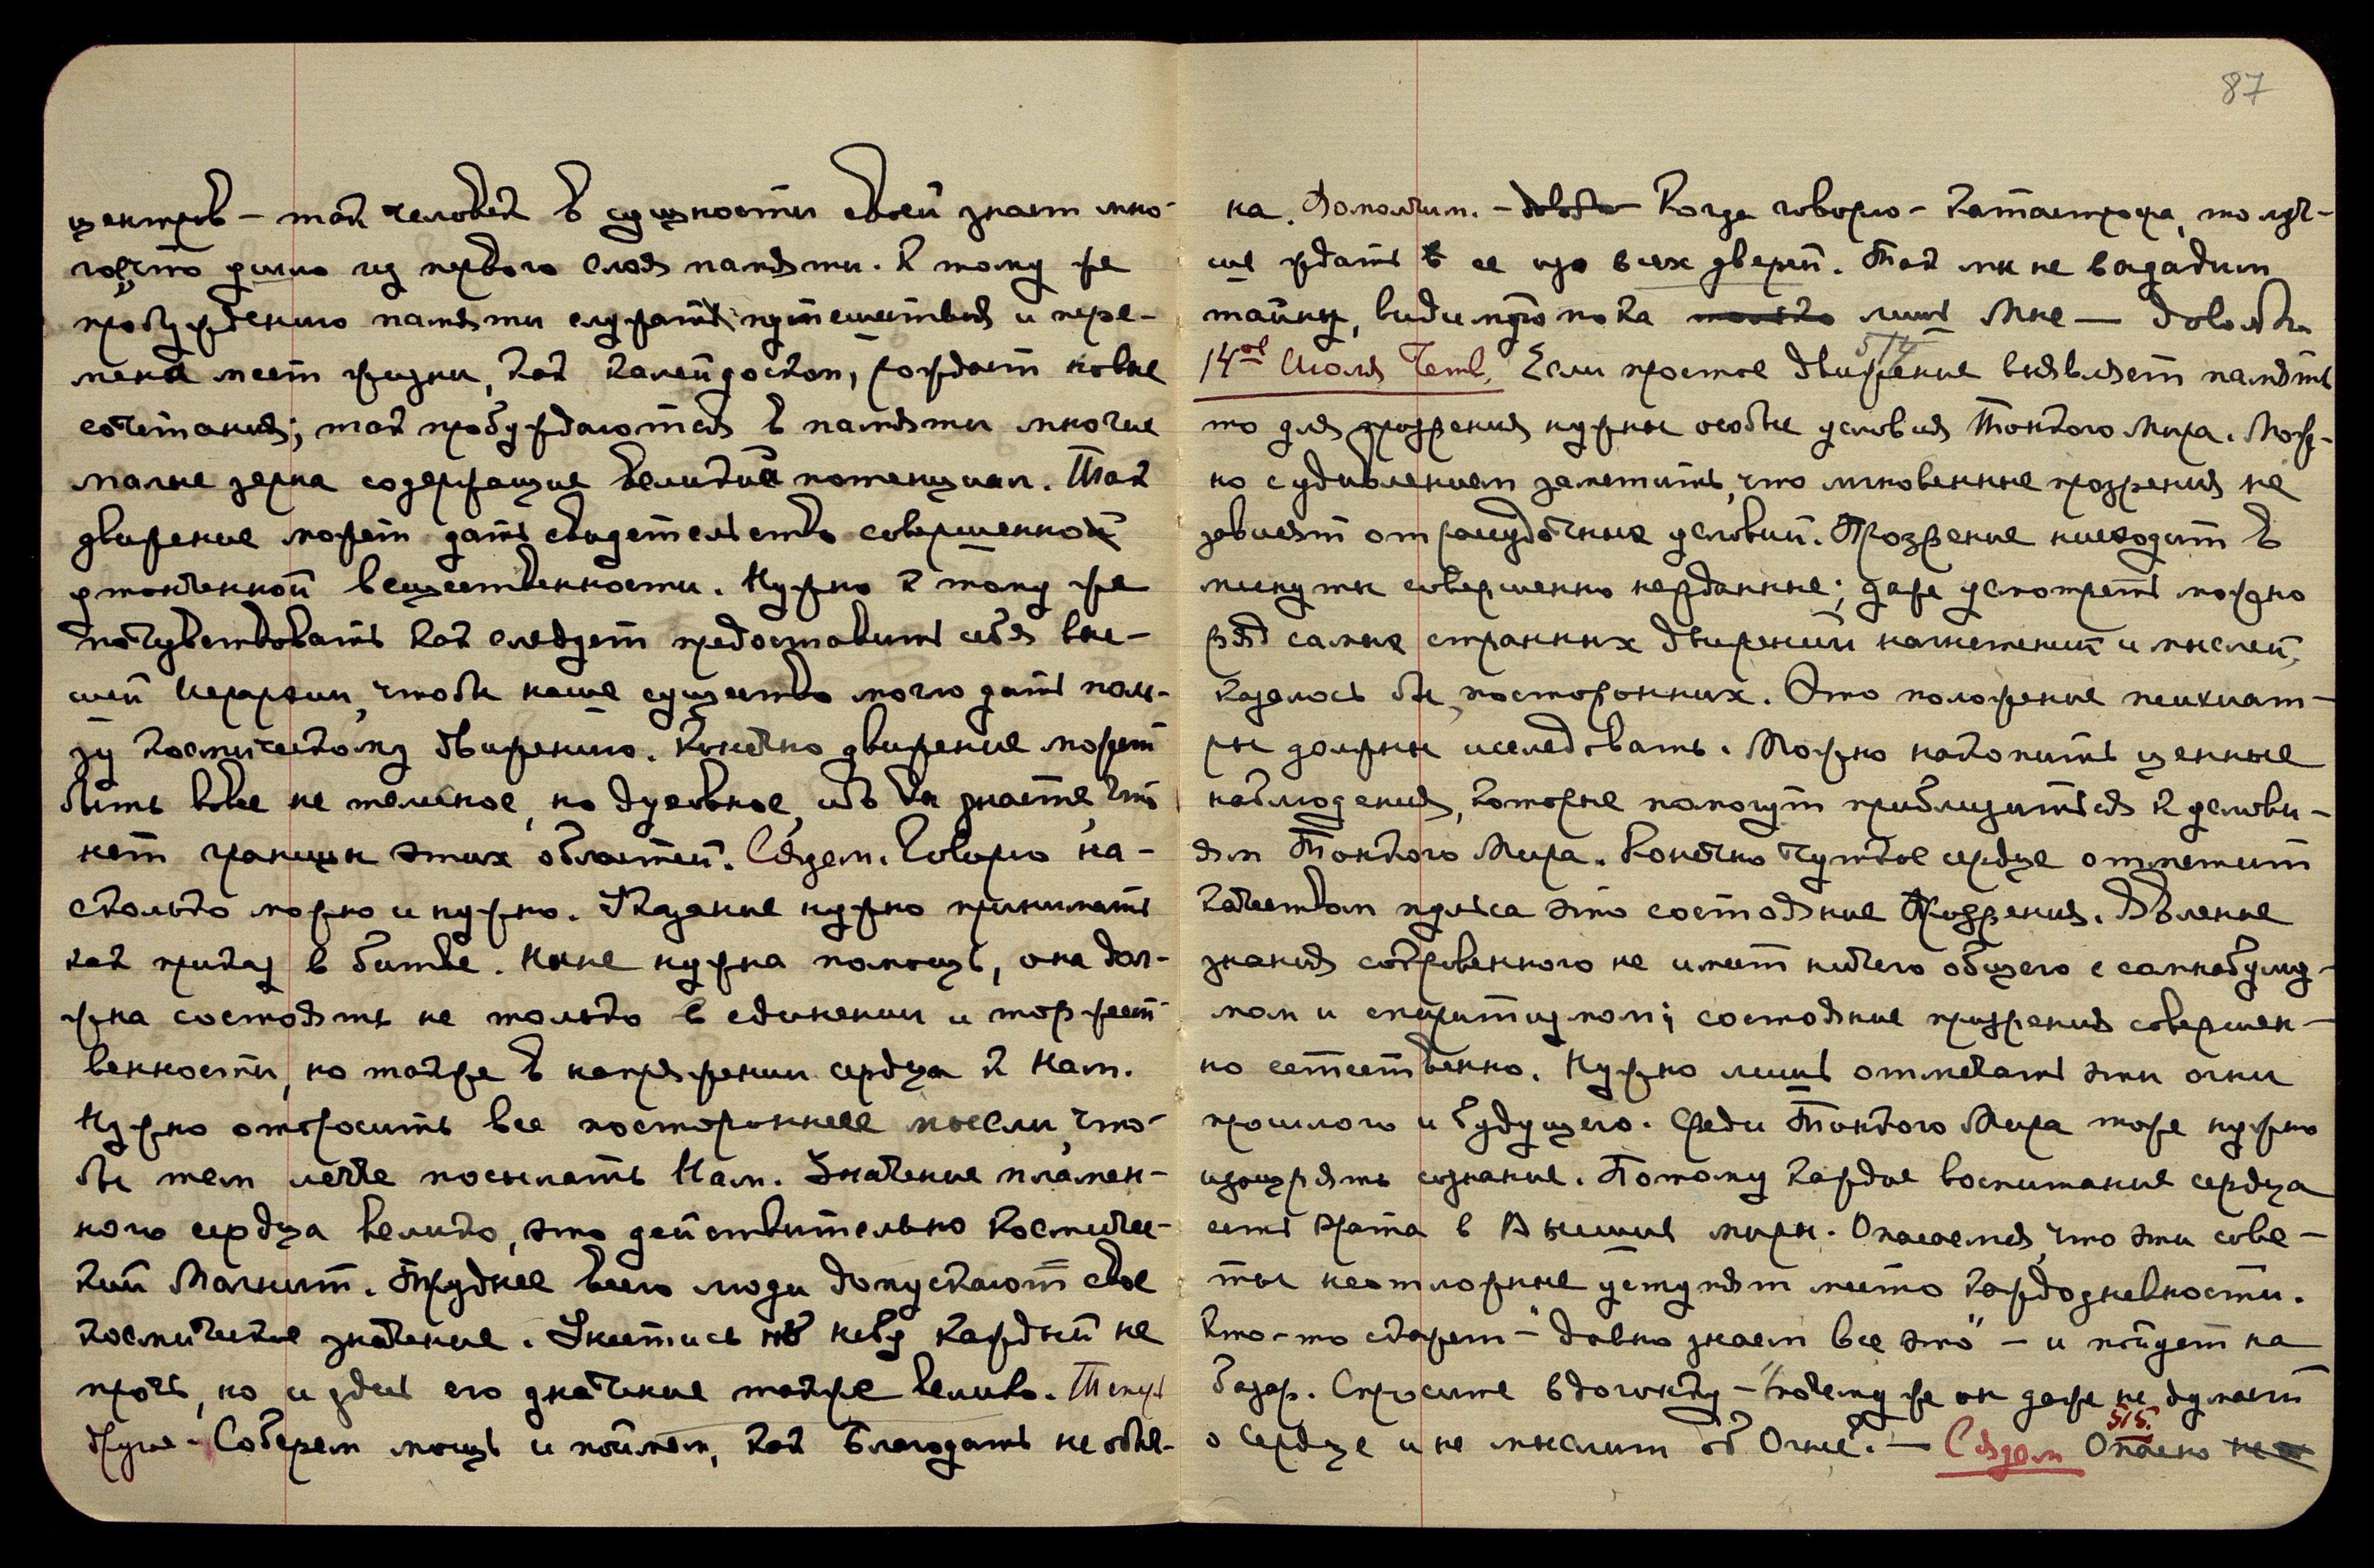 87
центров – так человек в сущности своей знает мно-
гое, что ушло из первого слоя памяти. К тому же
пробуждению памяти служат путешествия и пере-
мена мест жизни, как калейдоскоп, рождает новые
сочетания; так пробуждаются в памяти многие
малые зерна содержащие великий потенциал. Так
движение может дать свидетельство совершенной
утонченной вещественности. Нужно к тому же
почувствовать как следует предоставить себя выс-
шей Иерархии, чтобы наше существо могло дать поль-
зу космическому движению. Конечно движение может
быть вовсе не телесное, но духовное, ибо вы знаете, что
нет границы этих областей. Сядем. Говорю на-
сколько можно и нужно. Указание нужно принимать
как приказ в битве. Ныне нужна помощь, она дол-
жна состоять не только в единении и торжест-
венности, но также в напряжении сердца к Нам.
Нужно отбросить все постороннее мысли, что-
бы тем легче посылать Нам. Значение пламен-
ного сердца велико, это действительно космичес-
кий Магнит. Труднее всего люди допускают свое
космическое значение. Знестись на небу каждый не
прочь, но и здесь его значение также велико. Теперь
другое. Соберем мощь и поймем, как благодать не обыч-
на. Помолчим. – Когда говорю – катастрофа, то луч-
ше ждать ее изо всех дверей. Так мы не выдадим
тайны, видимую пока только лишь Мне – довольно
14ое Июля Четв. 514 Если простое движение выявляет память
то для прозрения нужны особые условия Тонкого Мира. Мож-
но с удивлением заметить, что мгновенные прозрения не
зависят от рассудочных условий. Прозрение нисходит в
минуты совершенно нежданные; даже усмотреть можно
ряд самых странных движений нагнетений и мыслей,
казалось бы, посторонних. Это положение психиат-
ры должны исследовать. Можно накопить ценные
наблюдения, которые помогут приблизиться к услови-
ям Тонкого Мира. Конечно чуткое сердце отметит
качеством пульса это состояние Прозрения. Явление
знания сокровенного не имеет ничего общего с сомнабулиз-
мом и спиритизмом; состояние прозрения совершен-
но естественно. Нужно лишь отмечать эти огни
прошлого и будущего. Среди Тонкого Мира тоже нужно
изощрять сознание. Потому каждое воспитание сердца
есть врата в Высшие миры. Опасаемся, что эти сове-
ты неотложные уступят место каждодневности.
Кто-то скажет – "давно знаем все это" – и пойдет на
базар. Спросите вдогонку – "почему же он даже не думает
о Сердце и не мыслит об Огне". – Сядем 515. Опасно не